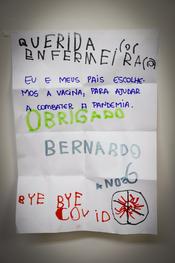 QUERIDA (O)
ENFERMEIRA(O)
EU E MEUS PAIS ESCOLHE-
MOS A VACINA, PARA AJUDAR
A COMBATER A PANDEMIA.
OBRIGADO
BERNARDO
6
ANOS
BYE BYE
COVID